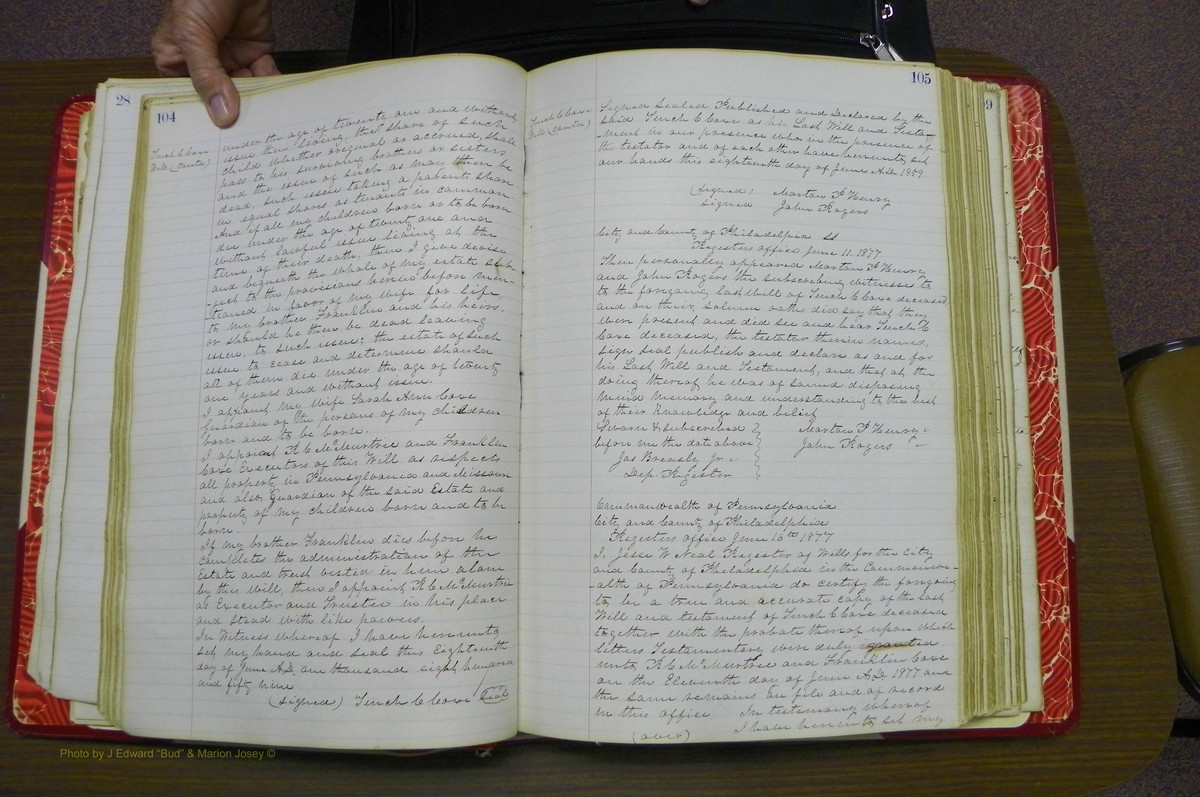 28
104
Tench C Coxe
Will (Contd)
under the age of twenty one and without
issue then living, the share of such
child whether original or accrued, shall
pass to his surviving brothers or sisters
and the issue of such as may then be
dead, such issue taking a parents share
in equal shares as tenants in common
And if all my children born or to be born
die under the age of twenty one and
without lawful issue living at the
time of their death, then I give devise
and bequeath the whole of my estate sub-
-ject to the provisions herein before men-
tioned in favor of my wife for life
to my brother Franklin and his heirs.
or should he then be dead leaving
issue, to such issue: the estate of such
issue to cease and determine should
all of them die under the age of twenty
one years and without issue.
I appoint my wife Sarah Ann Coxe
Guardian of the persons of my children
born and to be born.
I appoint R C McMurtrie and Franklin
Coxe Executors of this Will as respects
all property in Pennsylvania and Missouri
and also Guardian of the said Estate and
property of my children born and to be
born.
If my brother Franklin dies before he
completes the administration of the
Estate and trust vested in him alone
by this Will, then I appoint R C McMurtrie
as Executor and Trustee in his place
and stead with like powers.
In Witness whereof I have hereunto
set my hand and seal this Eighteenth
day of June A.D. one thousand eight hundred
and fifty nine
(signed) Tench C Coxe Seal
105
9
Tench C Coxe
Will (Contd)
Signed Sealed Published and Declared by the
said Tench C Coxe as his Last Will and Testa-
-ment in our presence who in the presence of
the testator and of each other have hereunto set
our hands this eighteenth day of June A.D. 1859
(Signed) Morton P Henry
Signed John Rogers
City and County of Philadelphia SS
Registers office June 11. 1877
Then personally appeared Morton P Henry
and John Rogers the subscribing witnesses to
to the foregoing last Will of Tench C Coxe deceased
and on their solemn oaths did say that they
were present and did see and hear Tench C
Coxe deceased, the testator therein named,
sign seal publish and declare as and for
his Last Will and Testament, and that at the
doing thereof he was of sound disposing
mind memory and understanding to the best
of their Knowledge and belief
Sworn & subscribed
before me the date above
Morton P Henry
John Rogers
Jas Brearly Jr
Dep. Register
Commonwealth of Pennsylvania
City and County of Philadelphia
Registers office June 16th 1877
I, Jesse W Neal Register of Wills for the City
and County of Philadelphia in the Commonwe-
-alth of Pennsylvania do certify the foregoing
to be a true and accurate copy of the Last
Will and testament of Tench C Coxe deceased
together with the probate thereof upon which
letters Testamentary were duly granted
unto R C McMurtrie and Franklin Coxe
on the Eleventh day of June A.D. 1877 and
the same remains on file and of record
in this office. In testimony whereof
(over) I have hereunto set my
Photo by J Edward "Bud" & Marion Josey ©